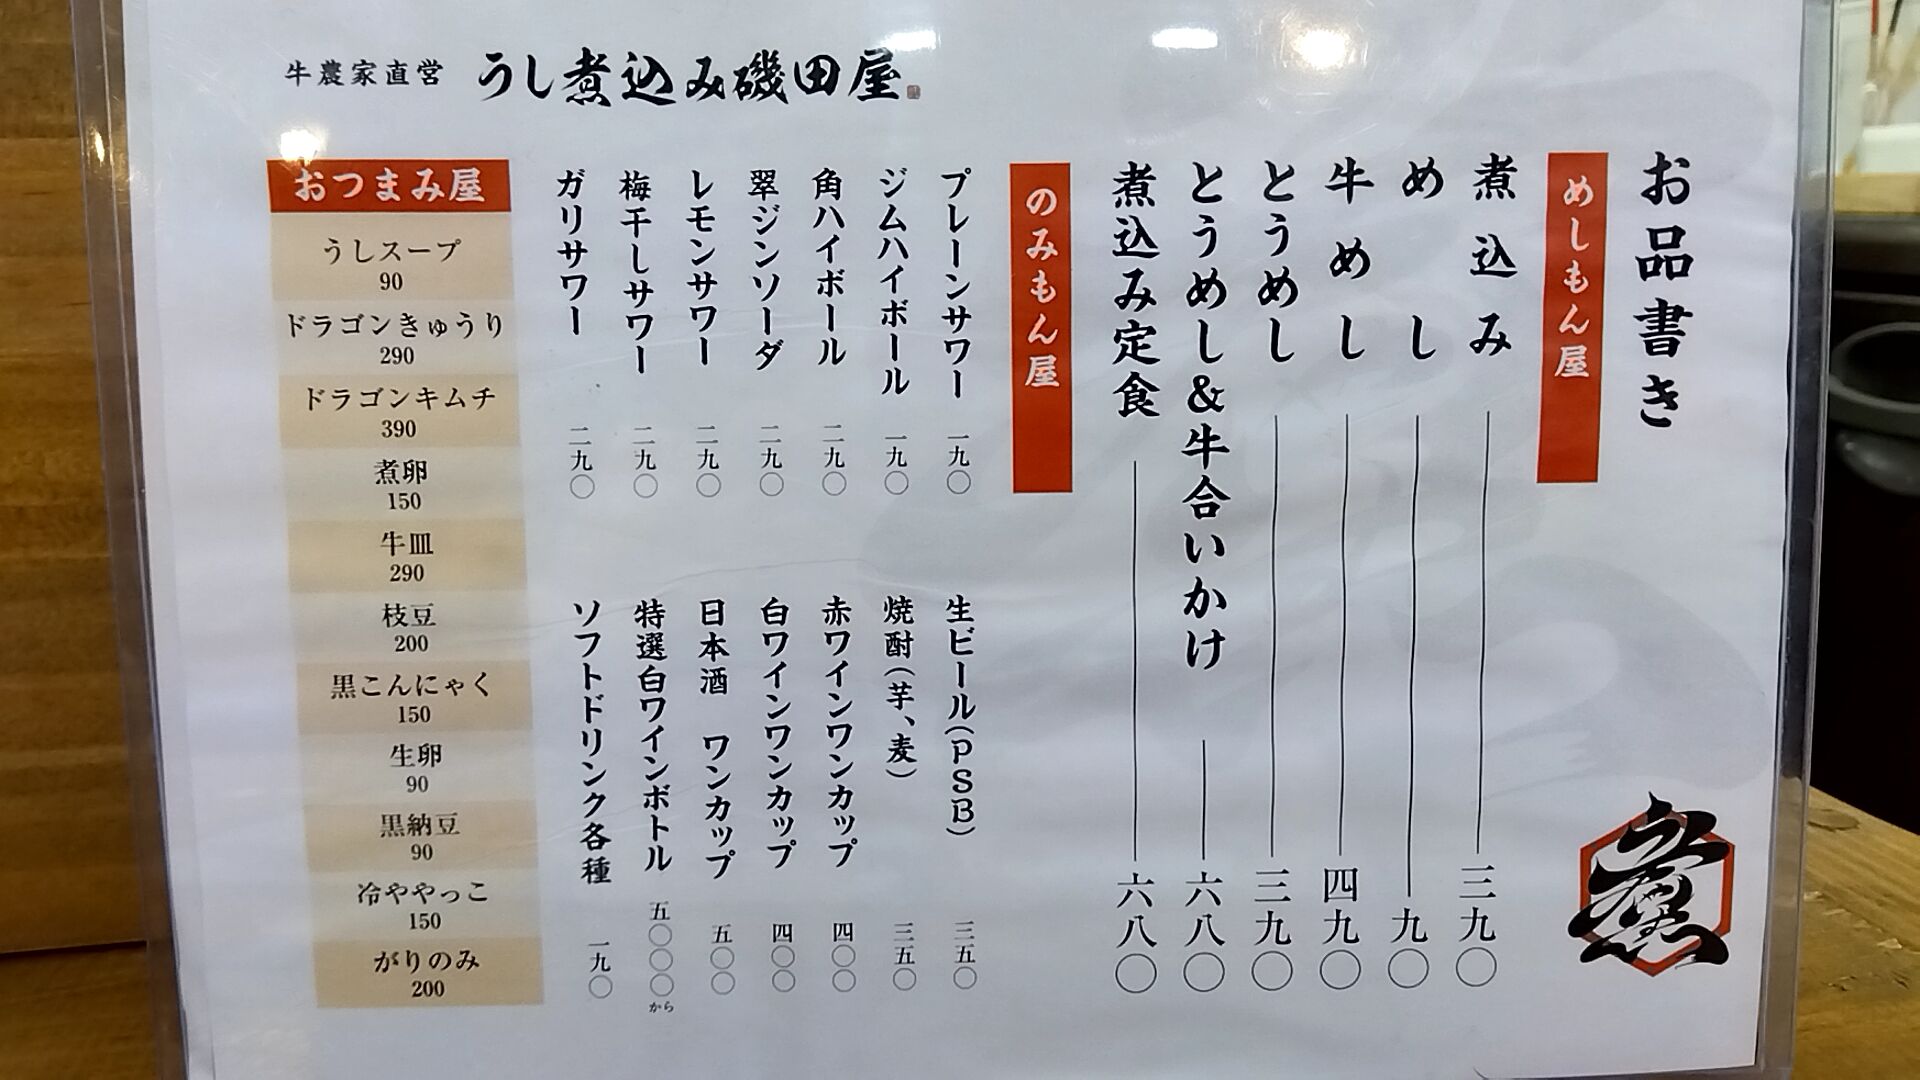 牛農家直営 うし煮込み磯田屋
お品書き
めしもん屋
煮込み 三九〇
めし 九〇
牛めし 四九〇
とうめし 三九〇
とうめし&牛合いかけ 六八〇
煮込み定食 六八〇
のみもん屋
プレーンサワー 一九〇
ジムハイボール 一九〇
角ハイボール 二九〇
翠ジンソーダ 二九〇
レモンサワー 二九〇
梅干しサワー 二九〇
ガリサワー 二九〇
生ビール(PSB) 三五〇
焼酎(芋、麦) 三五〇
赤ワインワンカップ 四〇〇
白ワインワンカップ 四〇〇
日本酒 ワンカップ 五〇〇
特選白ワインボトル 五〇〇〇から
ソフトドリンク各種 一九〇
おつまみ屋
うしスープ
90
ドラゴンきゅうり
290
ドラゴンキムチ
390
煮卵
150
牛皿
290
枝豆
200
黒こんにゃく
150
生卵
90
黒納豆
90
冷ややっこ
150
がりのみ
200
煮